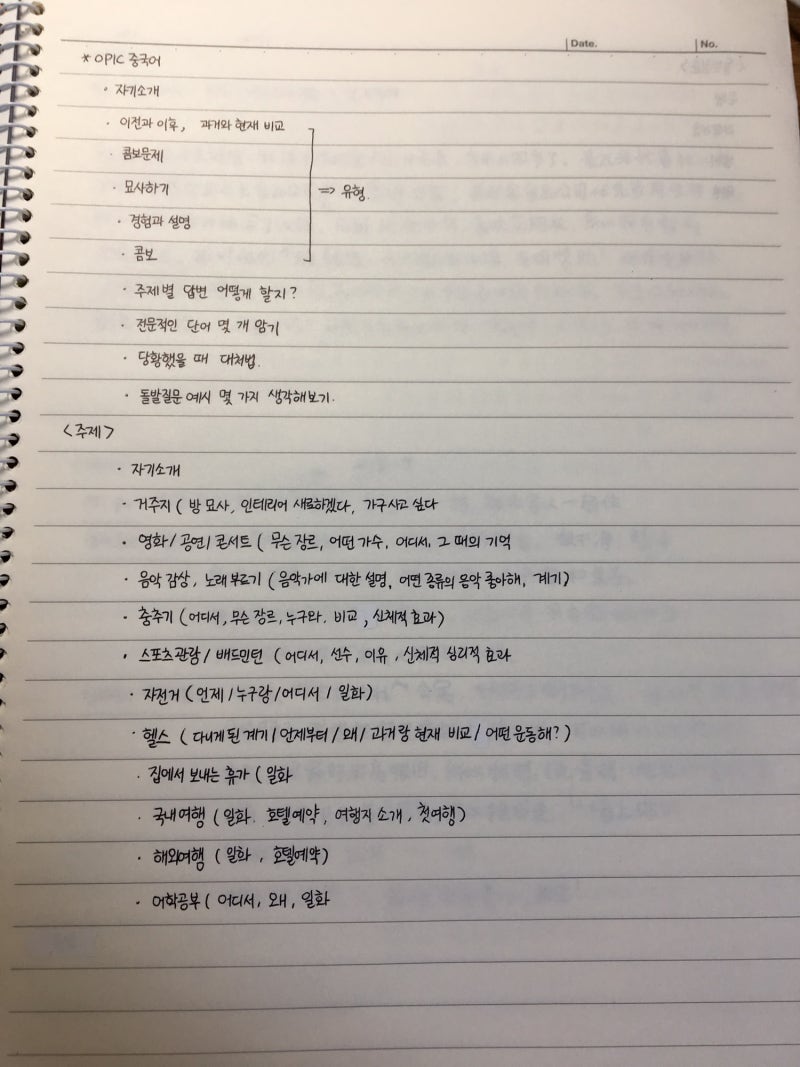 Date.
No.
* OPIC 중국어
· 자기소개
· 이전과 이후, 과거와 현재 비교
· 콤보문제
· 묘사하기
=> 유형.
· 경험과 설명
· 콤보
· 주제별 답변 어떻게 할지?
· 전문적인 단어 몇 개 암기
· 당황했을 때 대처법.
· 돌발질문 예시 몇 가지 생각해보기.
<주제>
· 자기소개
· 거주지 ( 방 묘사, 인테리어 새로하겠다, 가구사고 싶다
· 영화/ 공연/ 콘서트 ( 무슨 장르, 어떤 가수, 어디서, 그 때의 기억
· 음악 감상, 노래 부르기 ( 음악가에 대한 설명, 어떤 종류의 음악 좋아해, 계기)
· 춤추기 (어디서, 무슨 장르, 누구와, 비교, 신체적 효과)
· 스포츠관람/ 배드민턴 ( 어디서, 선수, 이유, 신체적 심리적 효과
· 자전거 ( 언제 / 누구랑 / 어디서 / 일화)
· 헬스 ( 다니게 된 계기 / 언제부터 / 왜 / 과거랑 현재 비교 / 어떤 운동해? )
· 집에서 보내는 휴가 ( 일화
· 국내여행 ( 일화, 호텔예약, 여행지 소개, 첫여행)
· 해외여행 ( 일화, 호텔예약)
· 어학공부 ( 어디서, 왜, 일화